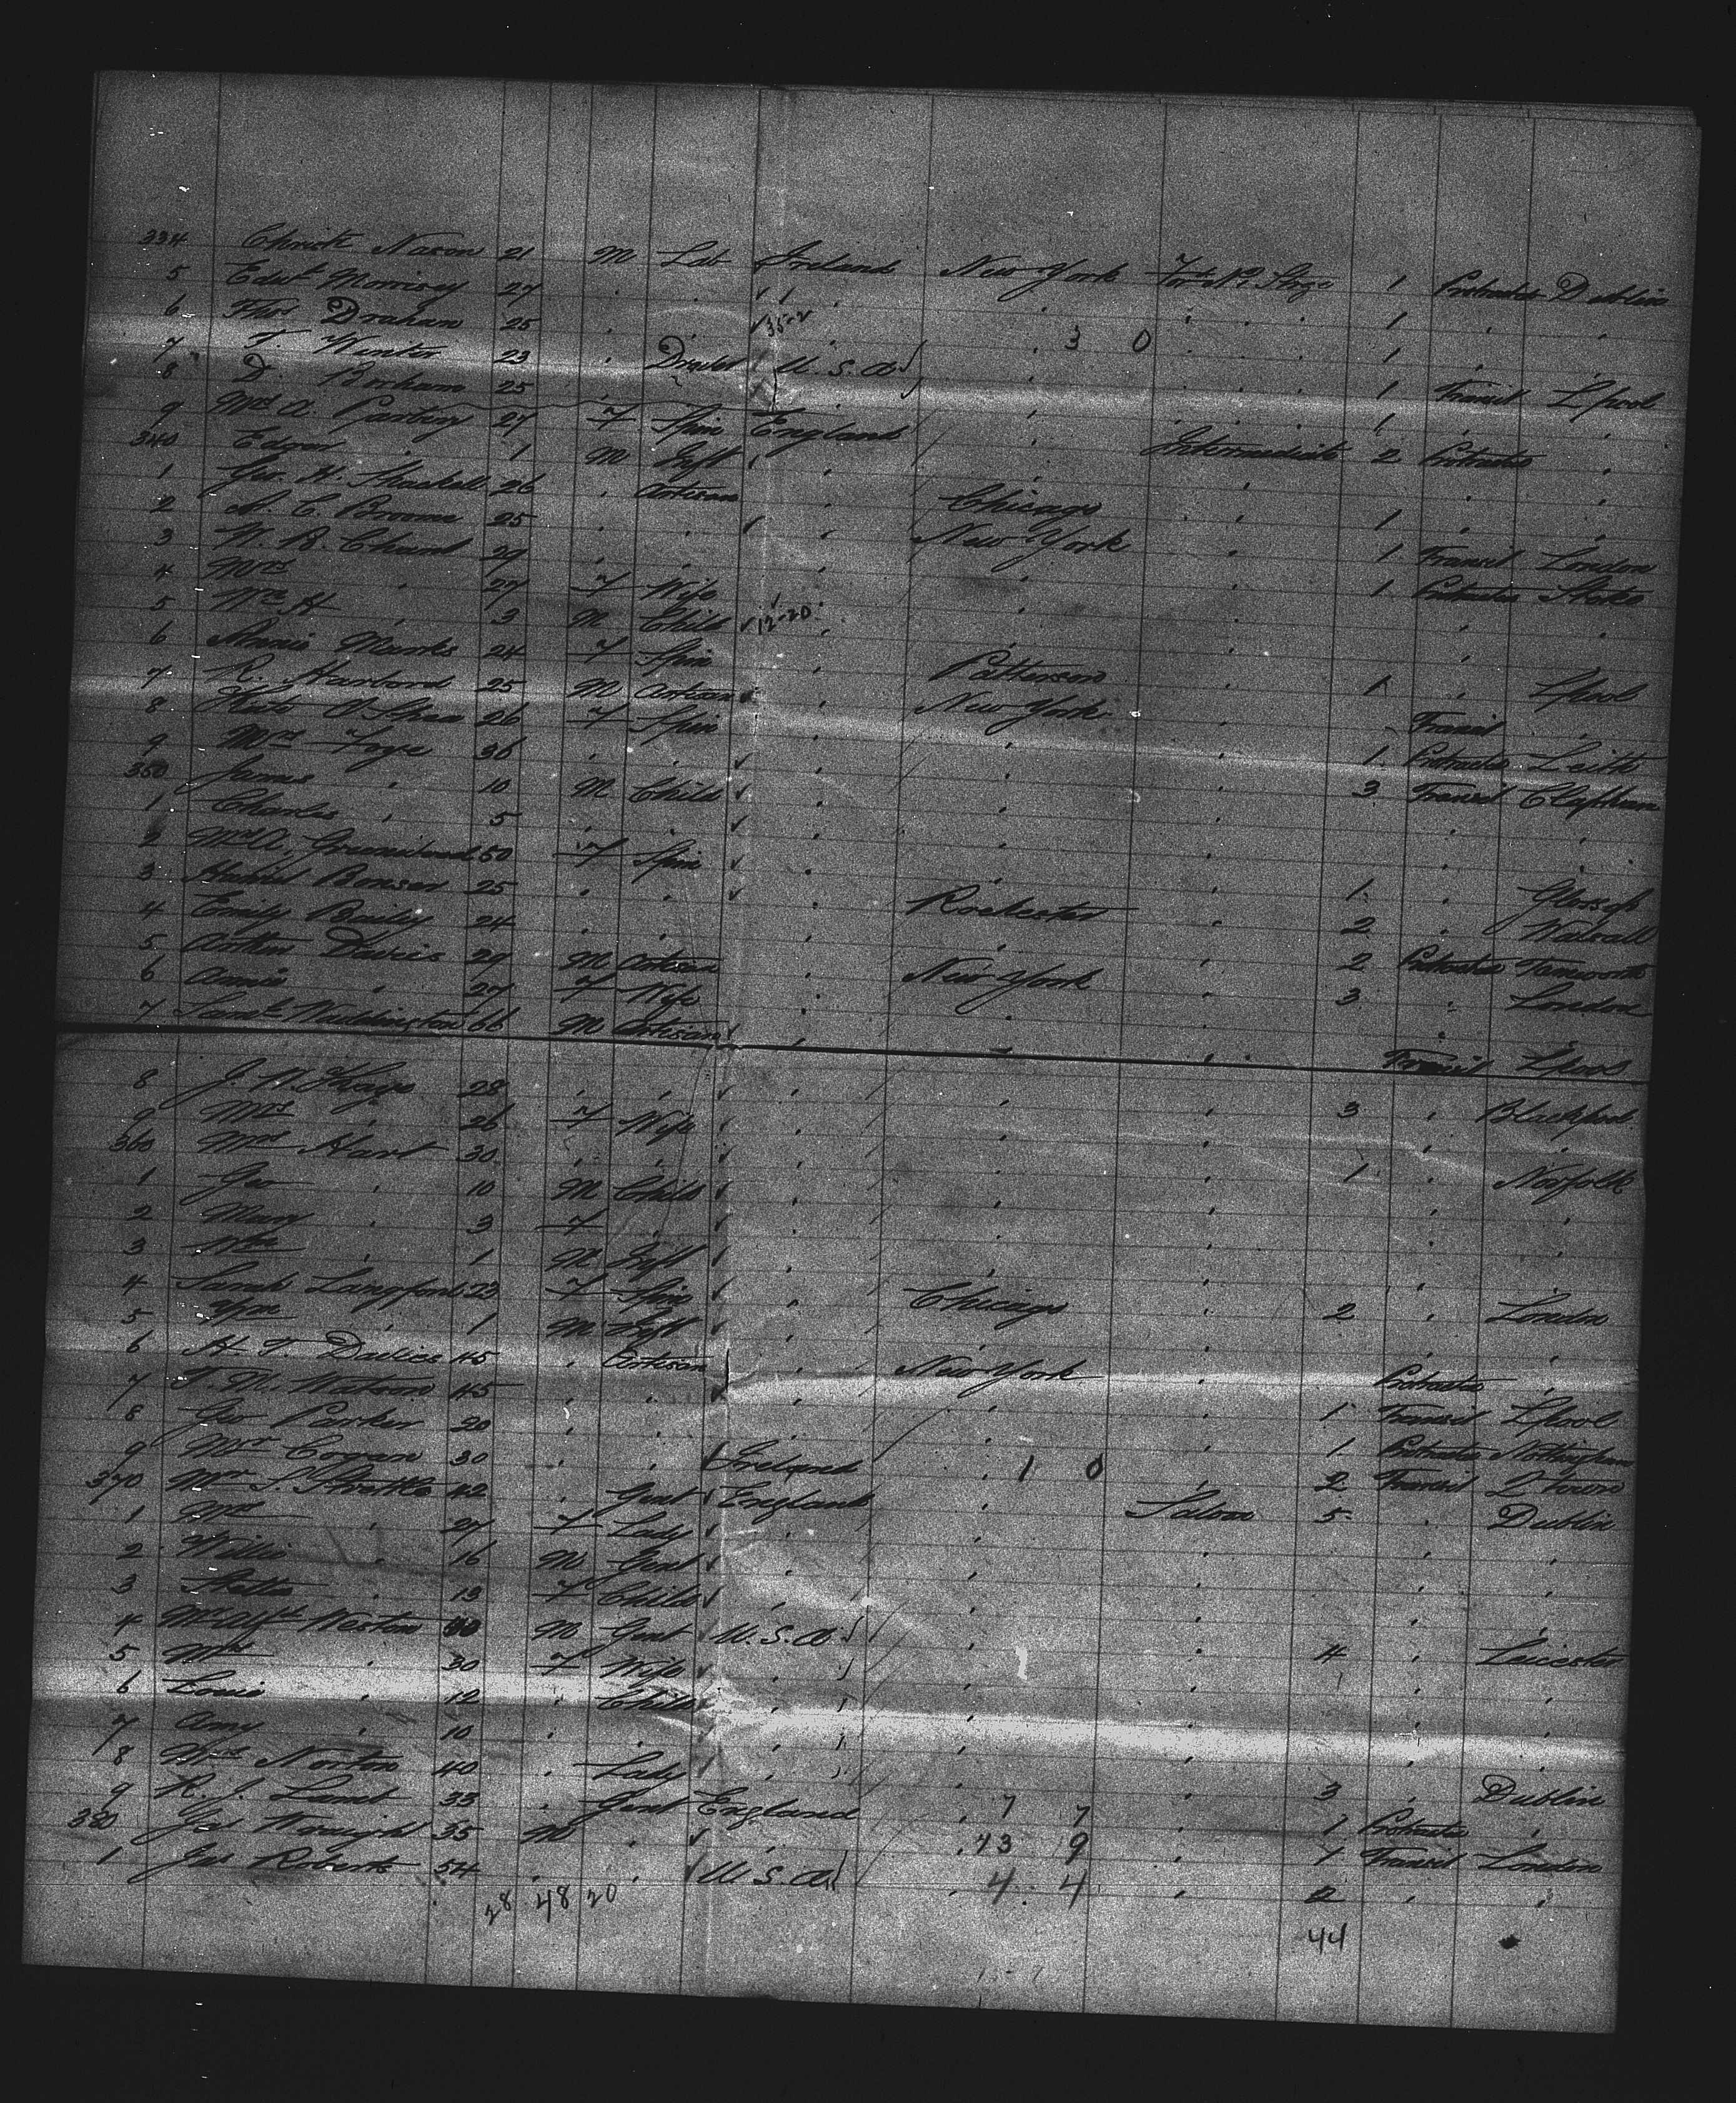 334 Christr Nason 21 M Lab Ireland New York Ford No 2 Strge 1 Protracted Dublin
5 Edwd Morrisey 27 " " " " " 1 " "
6 Thos Draham 25 " " 35-2 " 3 0 " 1 " "
7 T. Winter 23 " U.S.A " " 1 Transit Lpool
8 D. Borham 25 " " " " 1 " "
9 Mrs A. Parbery 27 F Spin England " Intermediate 2 Protracted "
340 Edgar " 1 M Inft " " " " "
1 Geo. H. Shackell 26 " Artisan " Chicago " 1 " "
2 A. C. Broome 25 " " " New York " 1 Transit London
3 W. B. Chand 29 " " " " " 1 Protracted Stoke
4 Mrs " 27 F Wife " " " " "
5 Wm H " 3 M Child 12-20 " " " " "
6 Annie Marks 24 F Spin " Patterson " 1 " Lpool
7 R. Harbord 25 M Artisan " New York " Transit "
8 Kate O'Shea 26 F Spin " " " 1 Protracted Leith
9 Mrs Fyfe 36 " " " " " 3 Transit Clapham
350 James " 10 M Child " " " " "
1 Charles " 5 " " " " " " "
2 Mrs A. Greenwood 50 F Spin " " " 1 " Glossop
3 Bonser 25 " " " Rochester " 2 " Walsall
4 Emily Bailey 24 " " " " " 2 Protracted Tamworth
5 Arthur Davies 29 M Artisan " New York " 3 " London
6 Annie " 27 F Wife " " " " "
7 Saml Waddington 66 M Artisan " " " Transit Lpool
8 J. N. Khays 28 " " " " " 3 " Blackpool
9 Mrs " 26 F Wife " " " " "
360 Mrs Hart 30 " " " " " 1 " Norfolk
1 Geo " 10 M Child " " " " "
2 Mary " 3 F " " " " " "
3 Wm " 1 M Inft " " " " "
4 Sarah Langford 23 F Spin " Chicago " 2 " London
5 Wm " 1 M Inft " " " " "
6 H. T. Davies 45 " Artisan " New York " Protracted "
7 T. M. Watson 45 " " " " " 1 Transit Lpool
8 Geo Parker 20 " " " " " 1 Protracted Nottingham
9 Mr Cogan 30 " " Ireland " 1 0 " 2 Transit Q Town
370 Mr S. Strettle 42 " Gent England " Saloon 5 " Dublin
1 Mrs " 27 F Lady " " " " "
2 Willie " 16 M Gent " " " " "
3 " 13 F Child " " " " "
4 Mr Alfd Weston 40 M Gent U.S.A " " 4 " Leicester
5 Mrs " 30 F Wife " " " " "
6 Louie " 12 " Child " " " " "
7 Amy " 10 " " " " " " "
8 Mrs Norton 40 " Lady " " " 3 " Dublin
9 R. J. Lamb 33 " Gent England " 7 7 " 1 Protracted "
380 Jas 35 M " " " 43 9 " 1 Transit London
1 Jas Roberts 54 " " U.S.A " 4 4 " 2 " "
28 48 20 44